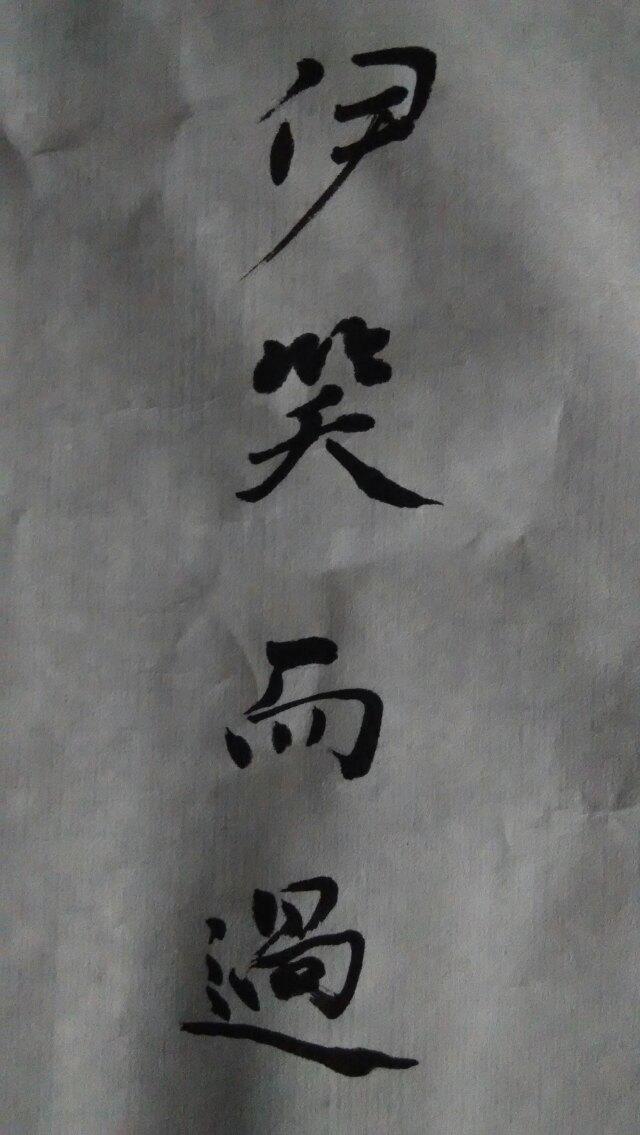 伊笑而過